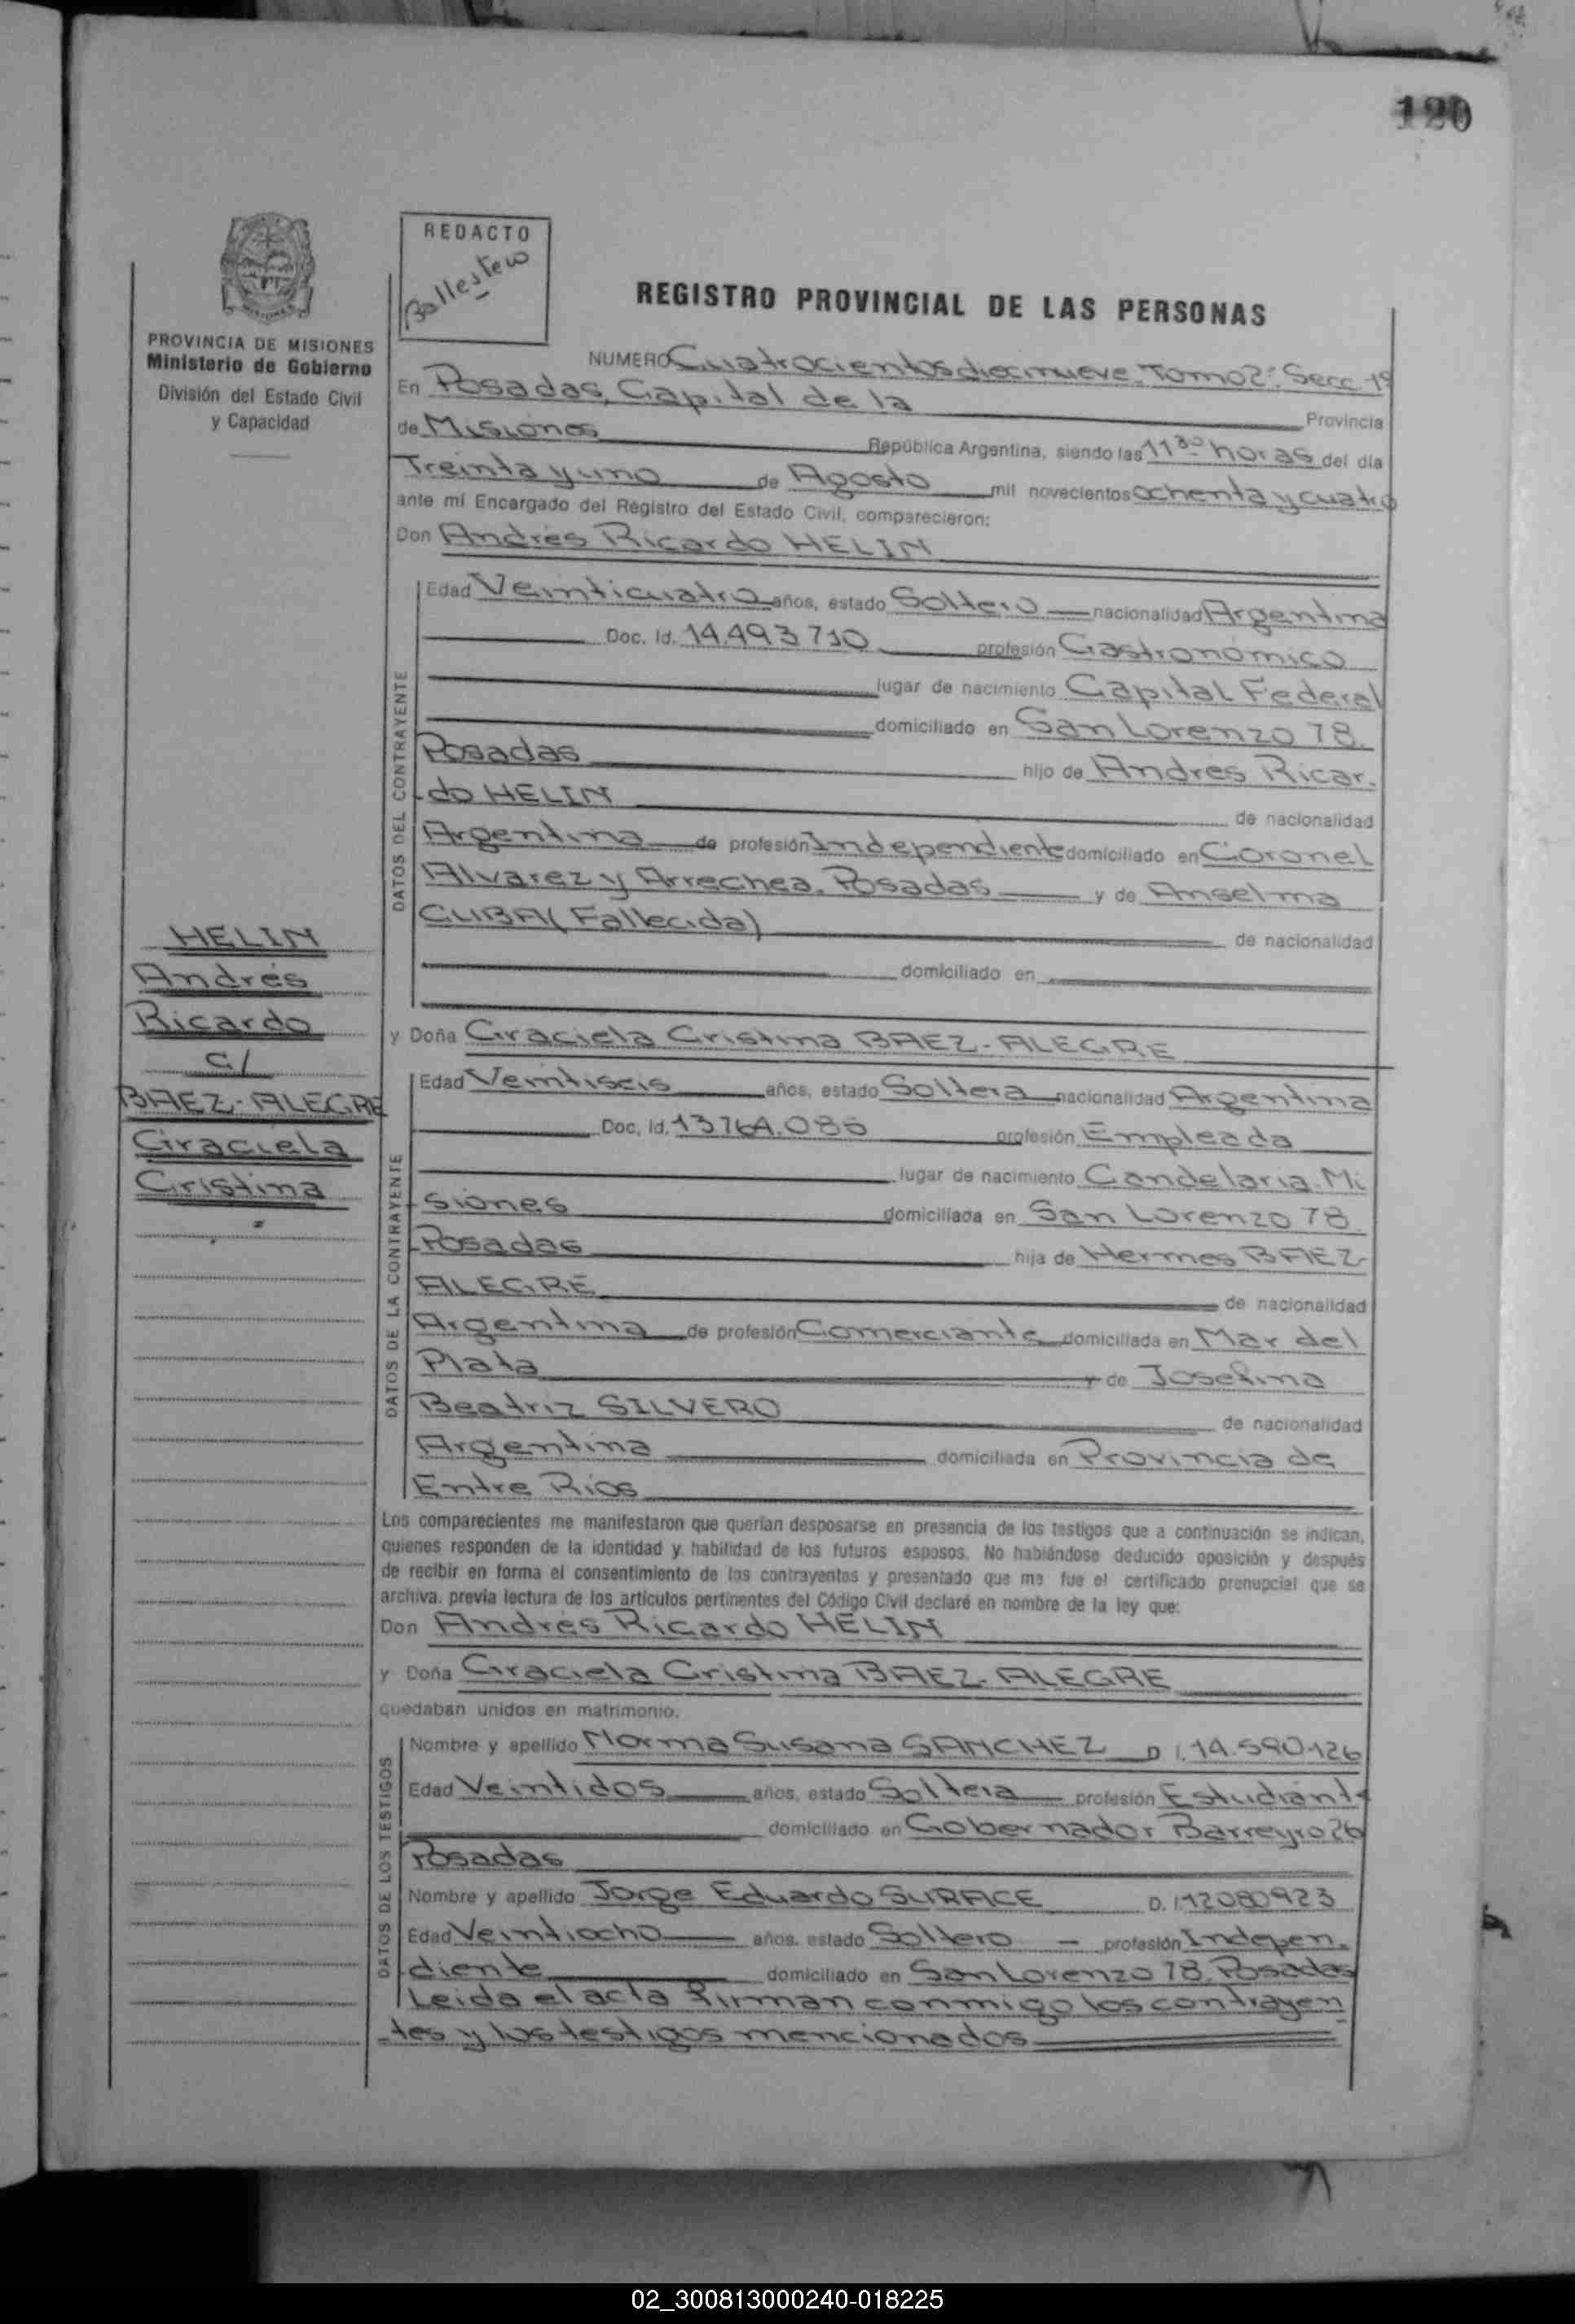 120
REDACTO
Ballestero
REGISTRO PROVINCIAL DE LAS PERSONAS
PROVINCIA DE MISIONES
Ministerio de Gobierno
División del Estado Civil
y Capacidad
NUMERO Cuatrocientos diecinueve. Tomo 2º. Secc. 1º
En Posadas, Capital de la Provincia
de Misiones República Argentina, siendo las 11 30 horas del día
Treinta y uno de Agosto mil novecientos ochenta y cuatro
ante mí Encargado del Registro del Estado Civil, comparecieron:
Don Andrés Ricardo HELIN
DATOS DEL CONTRAYENTE
Edad Veinticuatro años, estado Soltero nacionalidad Argentina
Doc. Id. 14.493710 profesión Gastronómico
lugar de nacimiento Capital Federal
domiciliado en San Lorenzo 78.
Posadas hijo de Andres Ricar.
do HELIN de nacionalidad
Argentina de profesión Independiente domiciliado en Coronel
Alvarez y Arrechea. Posadas y de Anselma
CUBA (Fallecida) de nacionalidad
domiciliado en
HELIN
Andrés
Ricardo
c/
BAEZ-ALEGRE
Graciela
Cristina
y Doña Graciela Cristina BAEZ-ALEGRE
DATOS DE LA CONTRAYENTE
Edad Veintiseis años, estado Soltera nacionalidad Argentina
Doc, Id. profesión Empleada
lugar de nacimiento Candelaria. Mi
siones domiciliada en San Lorenzo 78.
Posadas hija de Hermes BAEZ-
ALEGRE de nacionalidad
Argentina de profesión Comerciante domiciliada en Mar del
Plata y de Josefina
Beatriz SILVERO de nacionalidad
Argentina domiciliada en Provincia de
Entre Rios
Los comparecientes me manifestaron que querían desposarse en presencia de los testigos que a continuación se indican,
quienes responden de la identidad y habilidad de los futuros esposos. No habiéndose deducido oposición y después
de recibir en forma el consentimiento de los contrayentes y presentado que me fue el certificado prenupcial que se
archiva. previa lectura de los artículos pertinentes del Código Civil declaré en nombre de la ley que:
Don Andrés Ricardo HELIN
y Doña Graciela Cristina BAEZ-ALEGRE
quedaban unidos en matrimonio.
DATOS DE LOS TESTIGOS
Nombre y apellido Norma Susana SANCHEZ D.I. 14.590.126
Edad Veintidos años, estado Soltera profesión Estudiante
domiciliado en Gobernador Barreyro 26
Posadas
Nombre y apellido Jorge Eduardo SURACE D.I. 12080923
Edad Veintiocho años. estado Soltero - profesión Indepen.
diente domiciliado en San Lorenzo 78. Posadas
Leida el acta firman conmigo los contrayen
-tes y los testigos mencionados
02_300813000240-018225